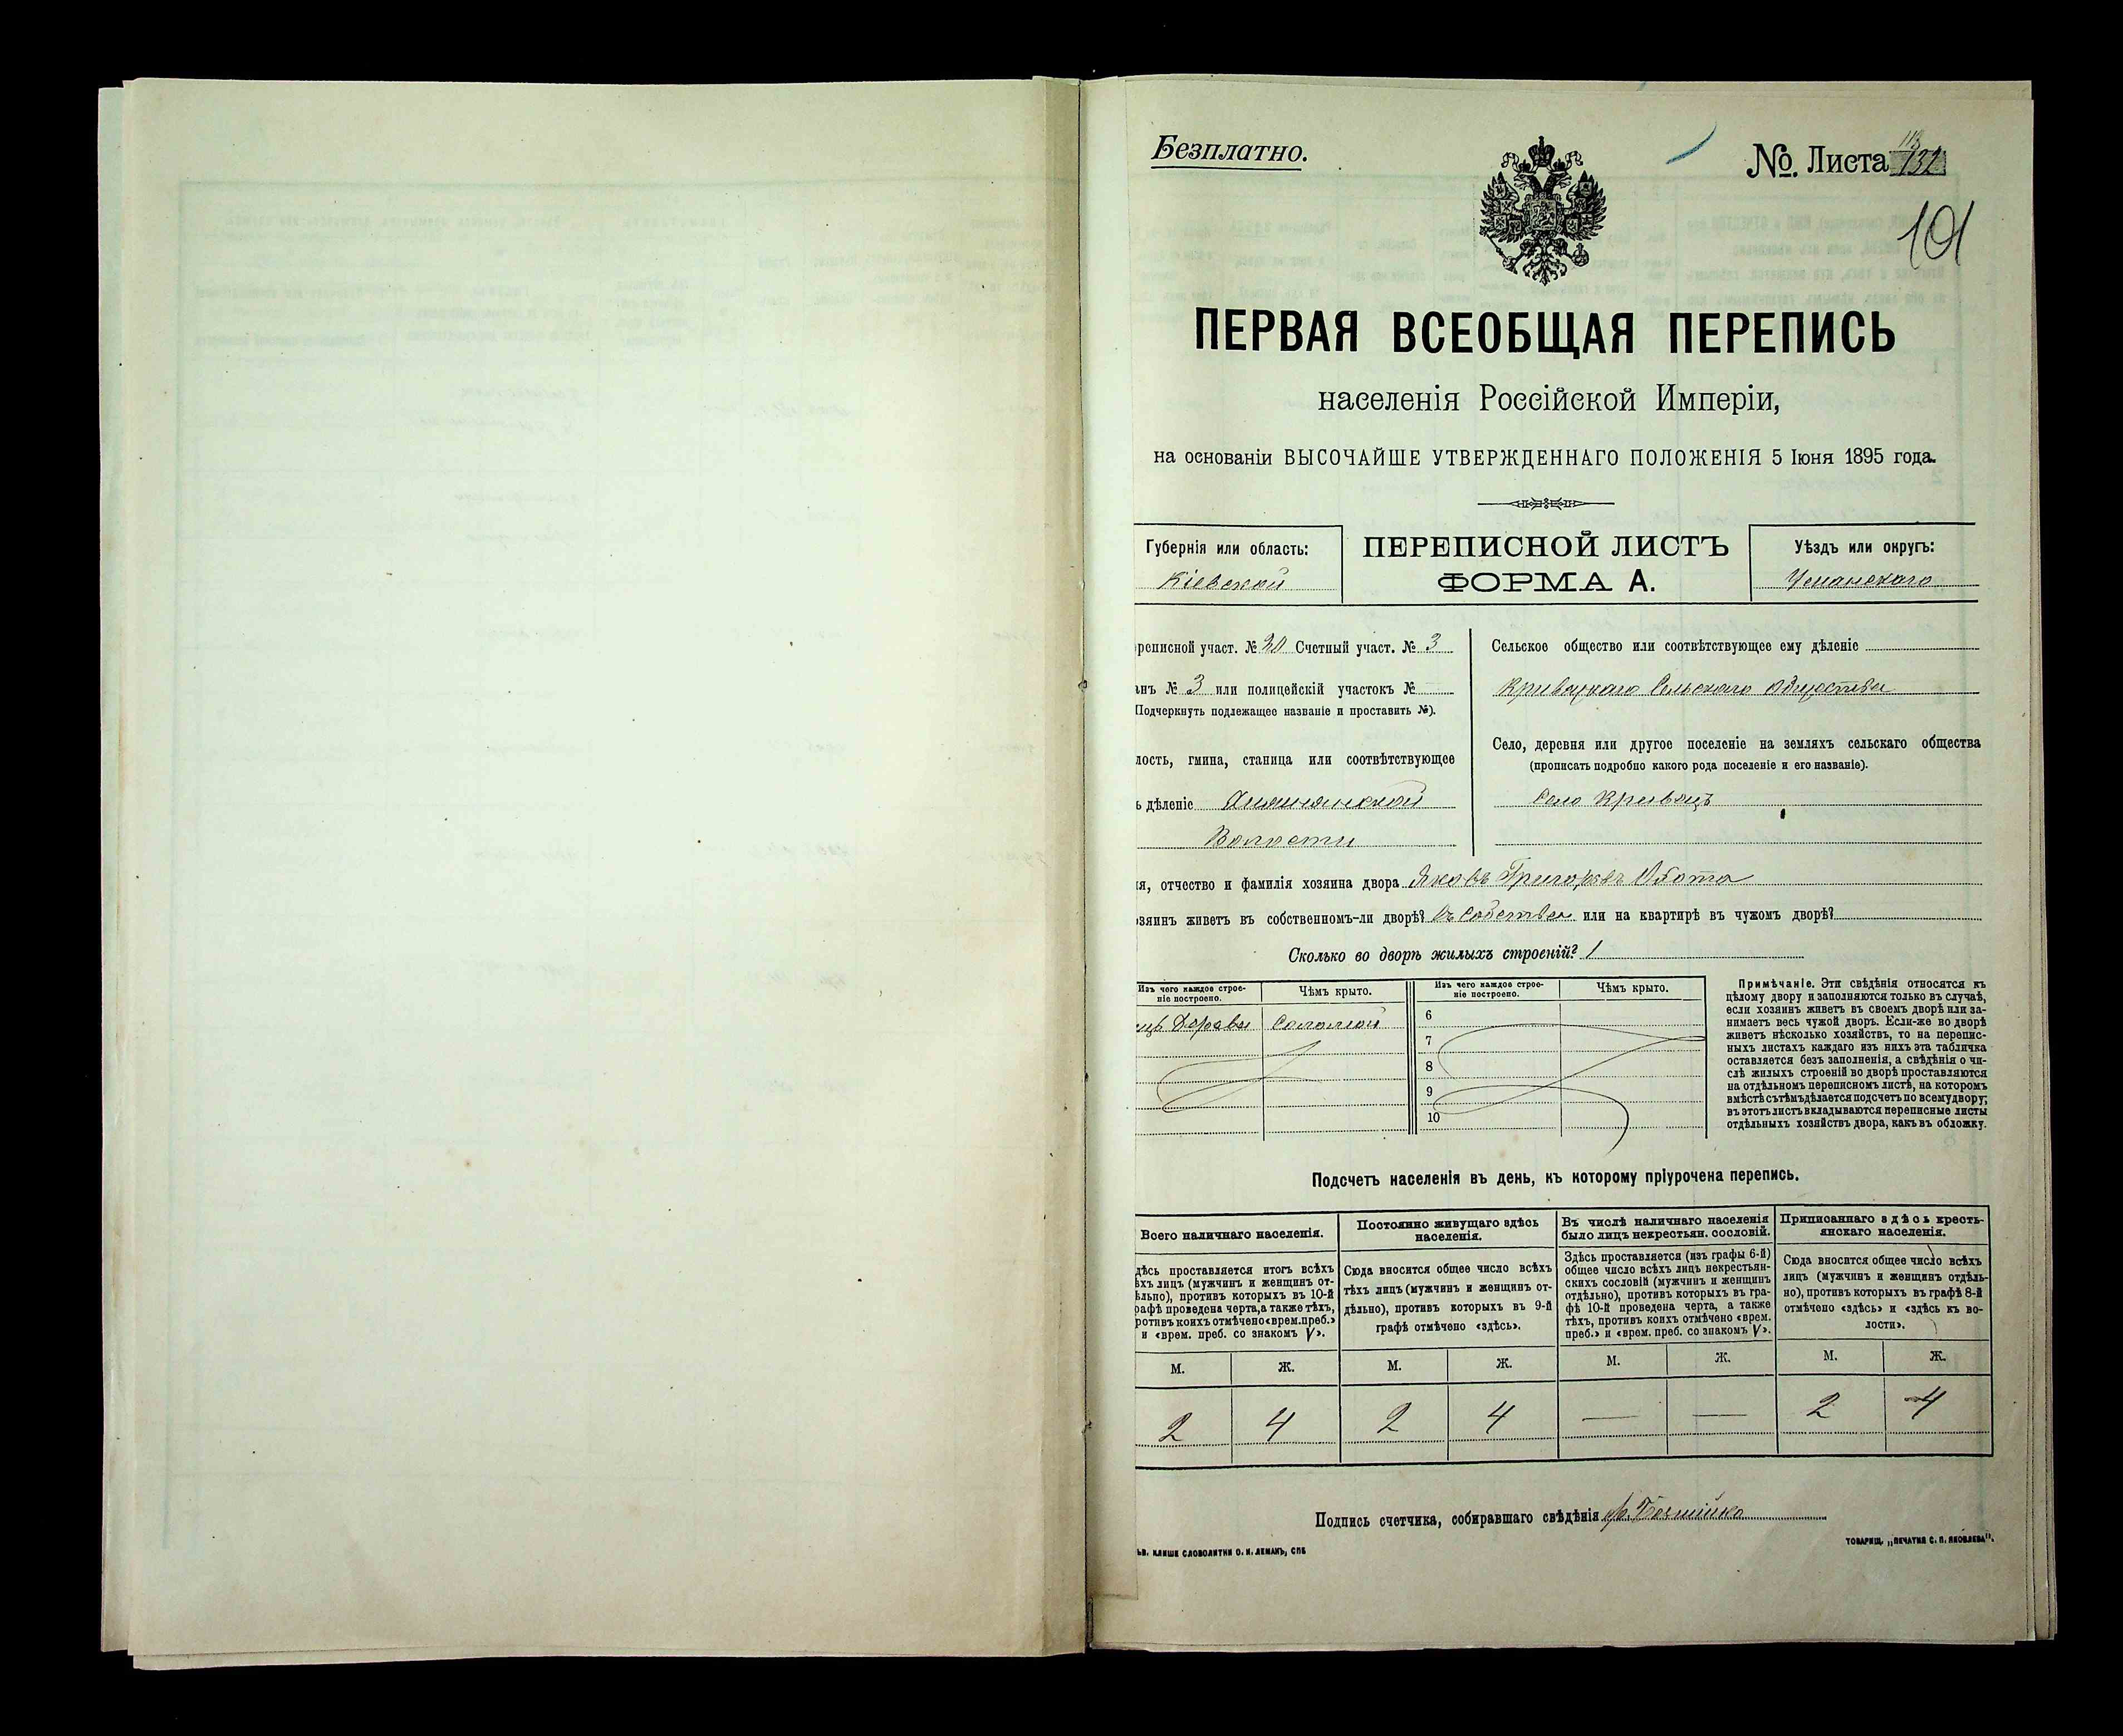 Безплатно.
№. Листа 113 132
101
ПЕРВАЯ ВСЕОБЩАЯ ПЕРЕПИСЬ
населенія Россійской Имперіи,
на основаніи ВЫСОЧАЙШЕ УТВЕРЖДЕННАГО ПОЛОЖЕНІЯ 5 Іюня 1895 года.
Губернія или область:
Кіевской
ПЕРЕПИСНОЙ ЛИСТЪ
ФОРМА А.
Уѣздъ или округъ:
Уманскаго
реписной участ. № 20 Счетный участ. № 3
анъ № 3 или полицейскій участокъ №
(Подчеркнуть подлежащее названіе и проставить №).
лость, гмина, станица или соотвѣтствующее
ь дѣленіе
Волости
Сельское общество или соотвѣтствующее ему дѣленіе
Кривецкаго Сельскаго Общества
Село, деревня или другое поселеніе на земляхъ сельскаго общества
(прописать подробно какого рода поселеніе и его названіе).
Село Кривецъ
ія, отчество и фамилія хозяина двора Яковъ Григорьевъ
озяинъ живетъ въ собственномъ-ли дворѣ? Въ собствен или на квартирѣ въ чужомъ дворѣ?
Сколько во дворѣ жилыхъ строеній? 1
Изъ чего каждое строе-
ніе построено.
Чѣмъ крыто.
Изъ чего каждое строе-
ніе построено.
Чѣмъ крыто.
изъ Дерева Соломой
6
7
8
9
10
Примѣчаніе. Эти свѣдѣнія относятся къ
цѣлому двору и заполняются только въ случаѣ,
если хозяинъ живетъ въ своемъ дворѣ или за-
нимаетъ весь чужой дворъ. Если-же во дворѣ
живетъ нѣсколько хозяйствъ, то на перепис-
ныхъ листахъ каждаго изъ нихъ эта табличка
оставляется безъ заполненія, а свѣдѣнія о чи-
слѣ жилыхъ строеній во дворѣ проставляются
на отдѣльномъ переписномъ листѣ, на которомъ
вмѣстѣ съ тѣмъ дѣлается подсчетъ по всему двору;
въ этотъ листъ вкладываются переписные листы
отдѣльныхъ хозяйствъ двора, какъ въ обложку.
Подсчетъ населенія въ день, къ которому пріурочена перепись.
Всего наличнаго населенія.
дѣсь проставляется итогъ всѣхъ
ѣхъ лицъ (мужчинъ и женщинъ от-
ѣльно), противъ которыхъ въ 10-й
рафѣ проведена черта, а также тѣхъ,
ротивъ коихъ отмѣчено «врем. преб.»
и «врем. преб. со знакомъ V».
Постоянно живущаго здѣсь
населенія.
Сюда вносится общее число всѣхъ
тѣхъ лицъ (мужчинъ и женщинъ от-
дѣльно), противъ которыхъ въ 9-й
графѣ отмѣчено «здѣсь».
Въ числѣ наличнаго населенія
было лицъ некрестьян. сословій.
Здѣсь проставляется (изъ графы 6-й)
общее число всѣхъ лицъ некрестьян-
скихъ сословій (мужчинъ и женщинъ
отдѣльно), противъ которыхъ въ гра-
фѣ 10-й проведена черта, а также
тѣхъ, противъ коихъ отмѣчено «врем.
преб.» и «врем. преб. со знакомъ V».
Приписаннаго здѣсь кресть-
янскаго населенія.
Сюда вносится общее число всѣхъ
лицъ (мужчинъ и женщинъ отдѣль-
но), противъ которыхъ въ графѣ 8-й
отмѣчено «здѣсь» и «здѣсь къ во-
лости».
М. Ж. М. Ж. М. Ж. М. Ж.
2 4 2 4 — — 2 4
Подпись счетчика, собиравшаго свѣдѣнія
ЬВ. КЛИШЕ СЛОВОЛИТНИ О. И. ЛЕМАНЪ, СПБ
ТОВАРИЩ. „ПЕЧАТНЯ С. П. ЯКОВЛЕВА".